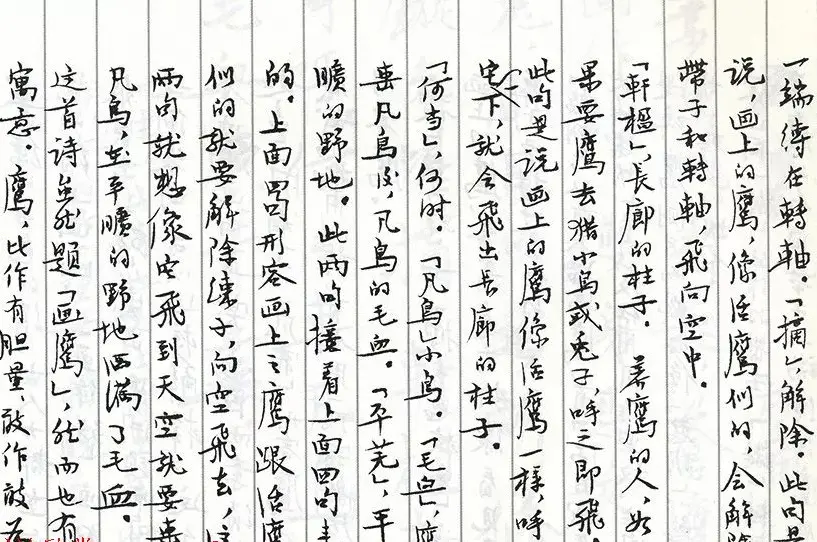 一端縛在轉軸。「摘」,解除。此句是
说,画上的鷹,像活鷹似的,会解除
带子和轉軸,飛向空中。
「軒楹」,長廊的柱子。 养鷹的人,如
果要鷹去猎小鸟或兎子,呼之即飛。
此句是说画上的鷹像活鷹一樣,呼
它一下,就会飛出長廊的柱子。
「何当」,何时。「凡鳥」小鸟。「毛血」,
凡鸟的毛血。「平芜」,平
曠的野地。此两句接着上面四句
的。上面四句形容画上之鷹跟活鷹
似的就要解除绦子,向空飛去,这
两句就想像它飛到天空就要
凡鳥,在平曠的野地洒滿了毛血。
这首诗虽然题「画鷹」,然而也有
寓意。鷹,比作有胆量,敢作敢为